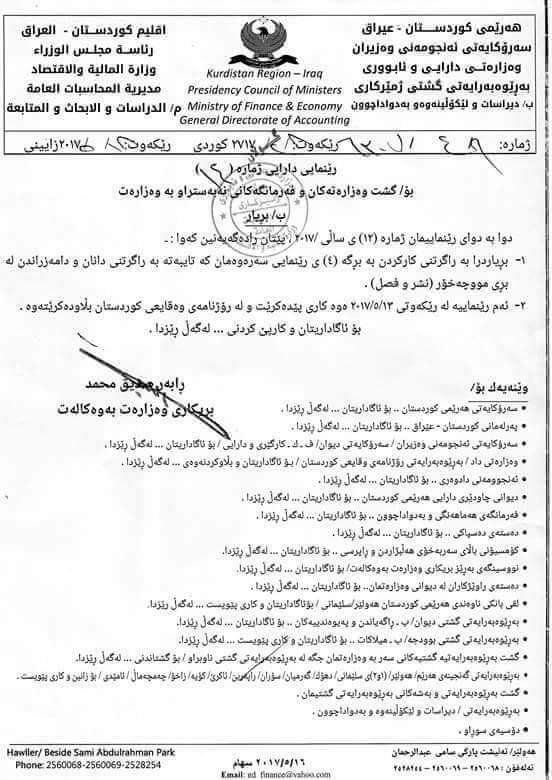 هەرێمی کوردستان - عیراق
سەرۆکایەتی ئەنجومەنی وەزیران
وەزارەتی دارایی و ئابووری
بەڕێوەبەرایەتی گشتی ژمێرکاری
ب/ دیراسات و لێکۆڵینەوەو بەدواداچوون
Kurdistan Region – Iraq
Presidency Council of Ministers
Ministry of Finance & Economy
General Directorate of Accounting
أقليم كوردستان - العراق
رئاسة مجلس الوزراء
وزارة المالية والاقتصاد
مديرية المحاسبات العامة
م/ الدراسات و الابحاث و المتابعة
ژمارە:
رێکەوت: ٢٧١٧ کوردی
رێکەوت: ٢٠١٧ زایینی
رێنمایی دارایی ژمارە (١٤)
بۆ/ گشت وەزارەتەکان و فەرمانگەکانی نەبەستراو بە وەزارەت
ب/ بڕیار
دوا بە دوای رێنماییمان ژمارە (١٣) ی ساڵی /٢٠١٧ ، پێتان رادەگەیەنین کەوا : ـ
١- بڕیاردرا بە راگرتنی کارکردن بە بڕگە (٤) ی رێنمایی سەرەوەمان کە تایبەتە بە راگرتنی دانان و دامەزراندن لە
بڕی مووچەخۆر (نشر و فصل) .
٢- ئەم رێنماییە لە رێکەوتی ٢٠١٧/٥/١٣ ەوە کاری پێدەکرێت و لە رۆژنامەی وەقایعی کوردستان بڵاودەکرێتەوە .
بۆ ئاگاداریتان و کارپێ کردنی ... لەگەڵ رێزدا .
رابەر صدیق محمد
بریکاری وەزارەت بەوەکالەت
وێنەیەک بۆ/
• سەرۆکایەتی هەرێمی کوردستان .. بۆ ئاگاداریتان ... لەگەڵ رێزدا .
• پەرلەمانی کوردستان - عێراق .. بۆ ئاگاداریتان ... لەگەڵ رێزدا .
• سەرۆکایەتی ئەنجومەنی وەزیران / سەرۆکایەتی دیوان/ ف . ک . کارگێری و دارایی / بۆ ئاگاداریتان ... لەگەڵ رێزدا .
• وەزارەتی داد / بەڕێوەبەرایەتی رۆژنامەی وقایعی کوردستان / بۆ ئاگاداریتان و بڵاوکردنەوەی ... لەگەڵ رێزدا .
• ئەنجوومەنی دادوەری .. بۆ ئاگاداریتان ... لەگەڵ رێزدا .
• دیوانی چاودێری دارایی هەرێمی کوردستان .. بۆ ئاگاداریتان ... لەگەڵ رێزدا .
• فەرمانگەی هەماهەنگی و بەدواداچوون .. بۆ ئاگاداریتان ... لەگەڵ رێزدا .
• دەستەی دەسپاکی .. بۆ ئاگاداریتان ... لەگەڵ رێزدا .
• کۆمسیۆنی باڵای سەربەخۆی هەڵبژاردن و راپرسی .. بۆ ئاگاداریتان ... لەگەڵ رێزدا .
• نووسینگەی بەڕێز بریکاری وەزارەت بەوەکالەت/ بۆ ئاگاداریتان ... لەگەڵ رێزدا.
• دەستەی راوێژکاران لە دیوانی وەزارەتمان.. بۆ ئاگاداریتان ... لەگەڵ رێزدا .
• لقی بانکی ناوەندی هەرێمی کوردستان هەولێر/سلێمانی / بۆئاگاداریتان و کاری پێویست ... لەگەڵ رێزدا.
• بەڕێوەبەرایەتی گشتی دیوان/ ب . راگەیاندن و پەیوەندییەکان .. بۆ ئاگاداریتان ... لەگەڵ رێزدا.
• بەڕێوەبەرایەتی گشتی بوودجە/ ب . میلاکات .. بۆ ئاگاداریتان و کاری پێویست ... لەگەڵ رێزدا.
• گشت بەڕێوەبەرایەتیە گشتیەکانی سەر بە وەزارەتمان جگە لە بەڕێوەبەرایەتی گشتی ناوبراو / بۆ گشتاندنی ... لەگەڵ رێزدا .
• بەڕێوەبەرایەتی گەنجینەی هەرێم/ هەولێر/(١و٢)ی سلێمانی/ دهۆک/ گەرمیان/ سۆران/ راپەرین/ ئاکرێ/ کۆیە/ زاخۆ/ چەمچەماڵ / ئامێدی / بۆ زانین و کاری پێویست .
• گشت بەڕێوەبەرایەتی و بەشەکانی بەڕێوەبەرایەتی گشتیمان .
• بەڕێوەبەرایەتی / دیراسات و لێکۆڵینەوە و بەدواداچوون .
• دۆسیەی سوڕاو .
Hawller/ Beside Sami Abdulrahman Park
Phone: 2560068-2560069-2528254
٢٠١٧/٥/١٦ سهام
Email: nd_finance@yahoo.com
هەولێر/ تەنیشت پارکی سامی عبدالرحمان
تەلەفۆن : ٢٥٦٠٠٦٨ - ٢٥٦٠٠٦٩ - ٢٥٢٨٢٥٤